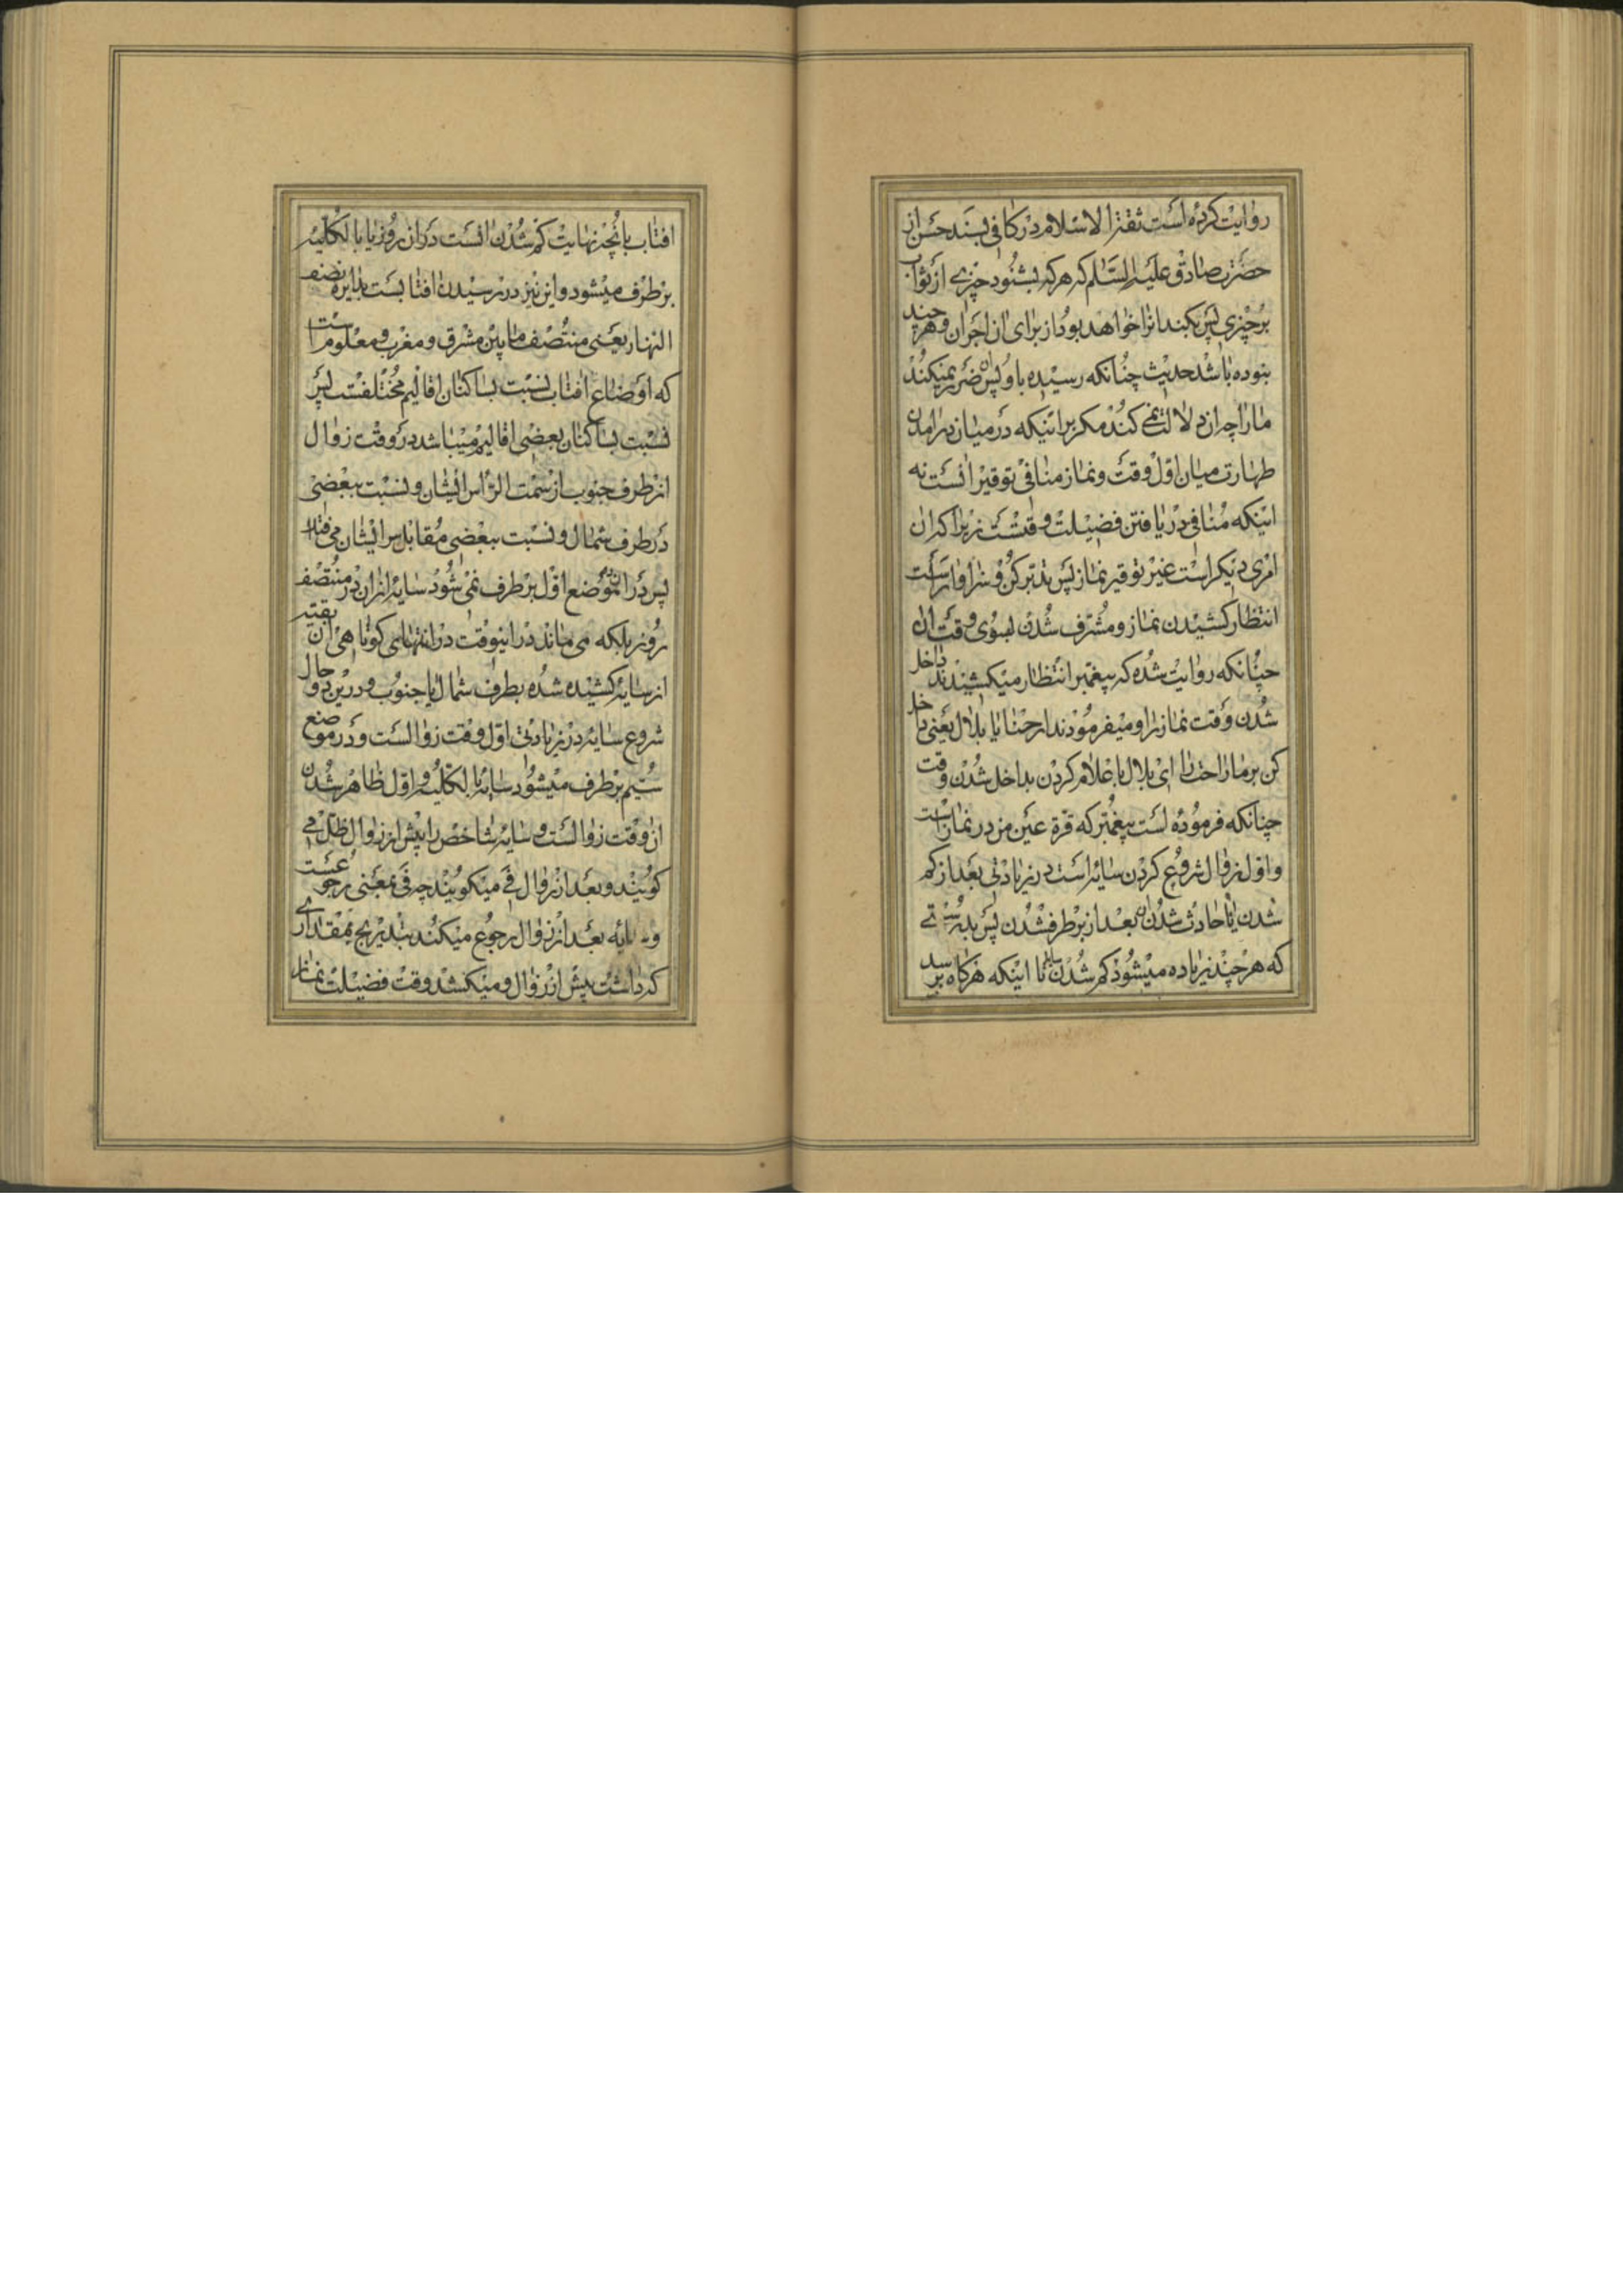 روایت کرده است ثقة الاسلام در کافی بسند حسن از
حضرت صادق علیه السلم که هر که بشنود چیزی از ثواب
بر چیزی پس بکند انرا خواهد بود از برای ان اجران و هر چند
بنوده باشد حدیث چنانکه رسیده باو پس ان ضرر نمیکند
ما را چه ان دلالت نمی کند مکر بر اینکه در میان در امدن
طهارت میان اول وقت و نماز منافی توقیر انست نه
اینکه منافی دریافتن فضیلت وقتست زیرا که ان
امری دیکر است غیر توقیر نماز پس تدبر کن و سزاوار است
انتظار کشیدن نماز و مشرف شدن بسوی وقت ان
چنانکه روایت شده که پیغمبر انتظار میکشیدند داخل
شدن وقت نماز را و میفرمودند ارحنا یا بلال یعنی داخل
کن بر ما راحت را ای بلال باعلام کردن بداخل شدن وقت
چنانکه فرموده است پیغمبر که قرة عین من در نماز است
و اول زوال شروع کردن سایه است در زیادتی بعد از کم
شدن یا حادث شدن ان بعد از برطرف شدن پس بدرستی
که هر چند زیاده میشود کم شدن سایه تا اینکه هرکاه برسد
افتاب بانچه نهایت کم شدن انست در ان روز یا بالکلیه
برطرف میشود و این نیز در رسیدن افتابست بدایره نصف
النهار یعنی منتصف مابین مشرق و مغرب و معلوم است
که اوضاع افتاب نسبت بساکنان اقالیم مختلفست پس
نسبت بساکنان بعضی اقالیم میباشد در وقت زوال
از طرف جنوب از سمت الراس ایشان و نسبت ببعضی
در طرف شمال و نسبت ببعضی مقابل سر ایشان می افتد
پس در ان دو موضع اول برطرف نمی شود سایه از ان در منتصف
روز بلکه می ماند در اینوقت در انتهای کوتاهی ان بقیه
از سایه کشیده شده بطرف شمال یا جنوب و در این دو حال
شروع سایه در زیادتی اول وقت زوالست و در موضع
سیم برطرف میشود سایه بالکلیه و اول ظاهر شدن
ان وقت زوالست و سایه شاخص را پیش از زوال ظل می
کویند و بعد از زوال فی میکویند چه فی بمعنی رجوعست
و سایه بعد از زوال رجوع میکند بتدریج بمقداری
که داشت پیش از زوال و میکشد وقت فضیلت نماز